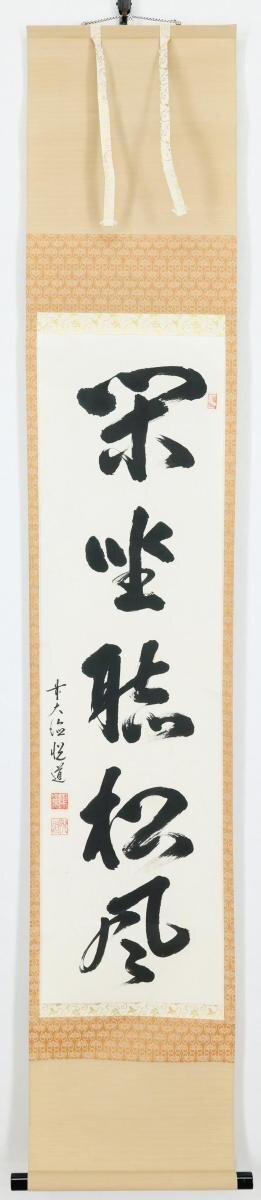 閑坐聴松風
大徳悦道